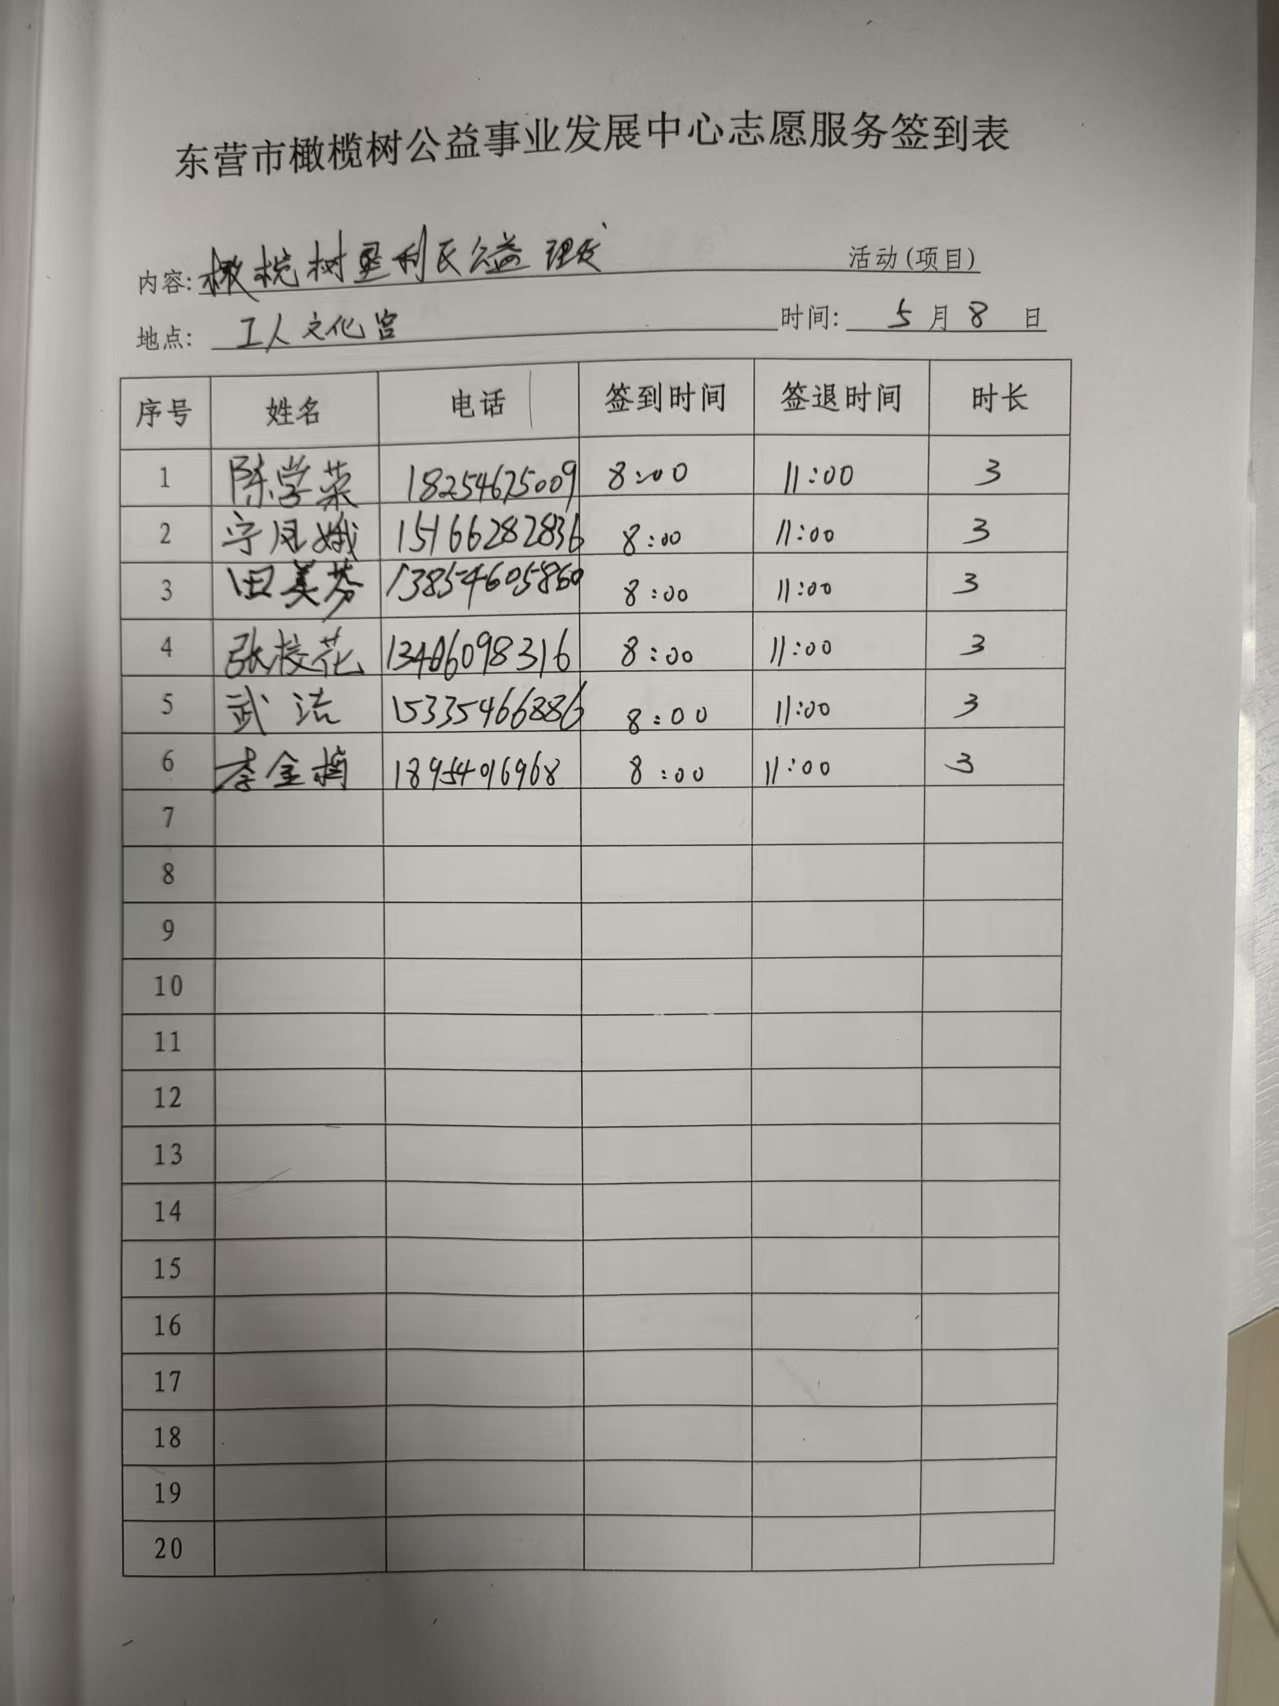 东营市橄榄树公益事业发展中心志愿服务签到表
内容: 橄榄树垦利区公益理发 活动(项目)
地点: 工人文化宫 时间: 5月8日
序号 姓名 电话 签到时间 签退时间 时长
1 陈学荣 18254675009 8:00 11:00 3
2 宁凤娥 15166282836 8:00 11:00 3
3 田美芬 13854605860 8:00 11:00 3
4 张校花 13406098316 8:00 11:00 3
5 武洁 15335466886 8:00 11:00 3
6 李金 18954016968 8:00 11:00 3
7
8
9
10
11
12
13
14
15
16
17
18
19
20